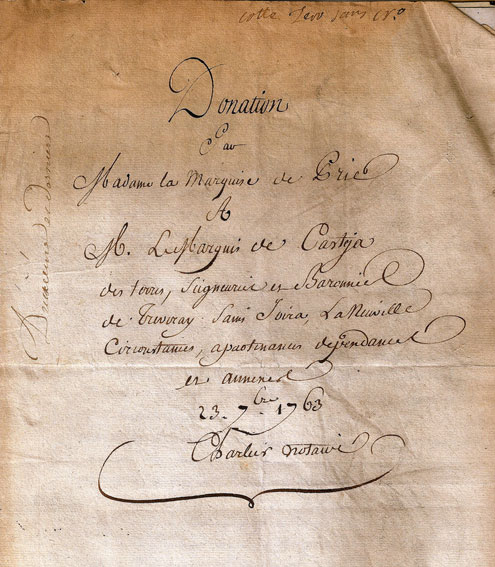 cotte Zero sans N.o
Donation
Par
Madame la Marquise de Prie
A
M. Le Marquis de Castéja
des terres, Seigneurie et Baronnie
de Treveray Saint Joire, La Neuville
Circonstances, apartenances dependances
et annexes
23. 7.bre 1763
Charlier notaire